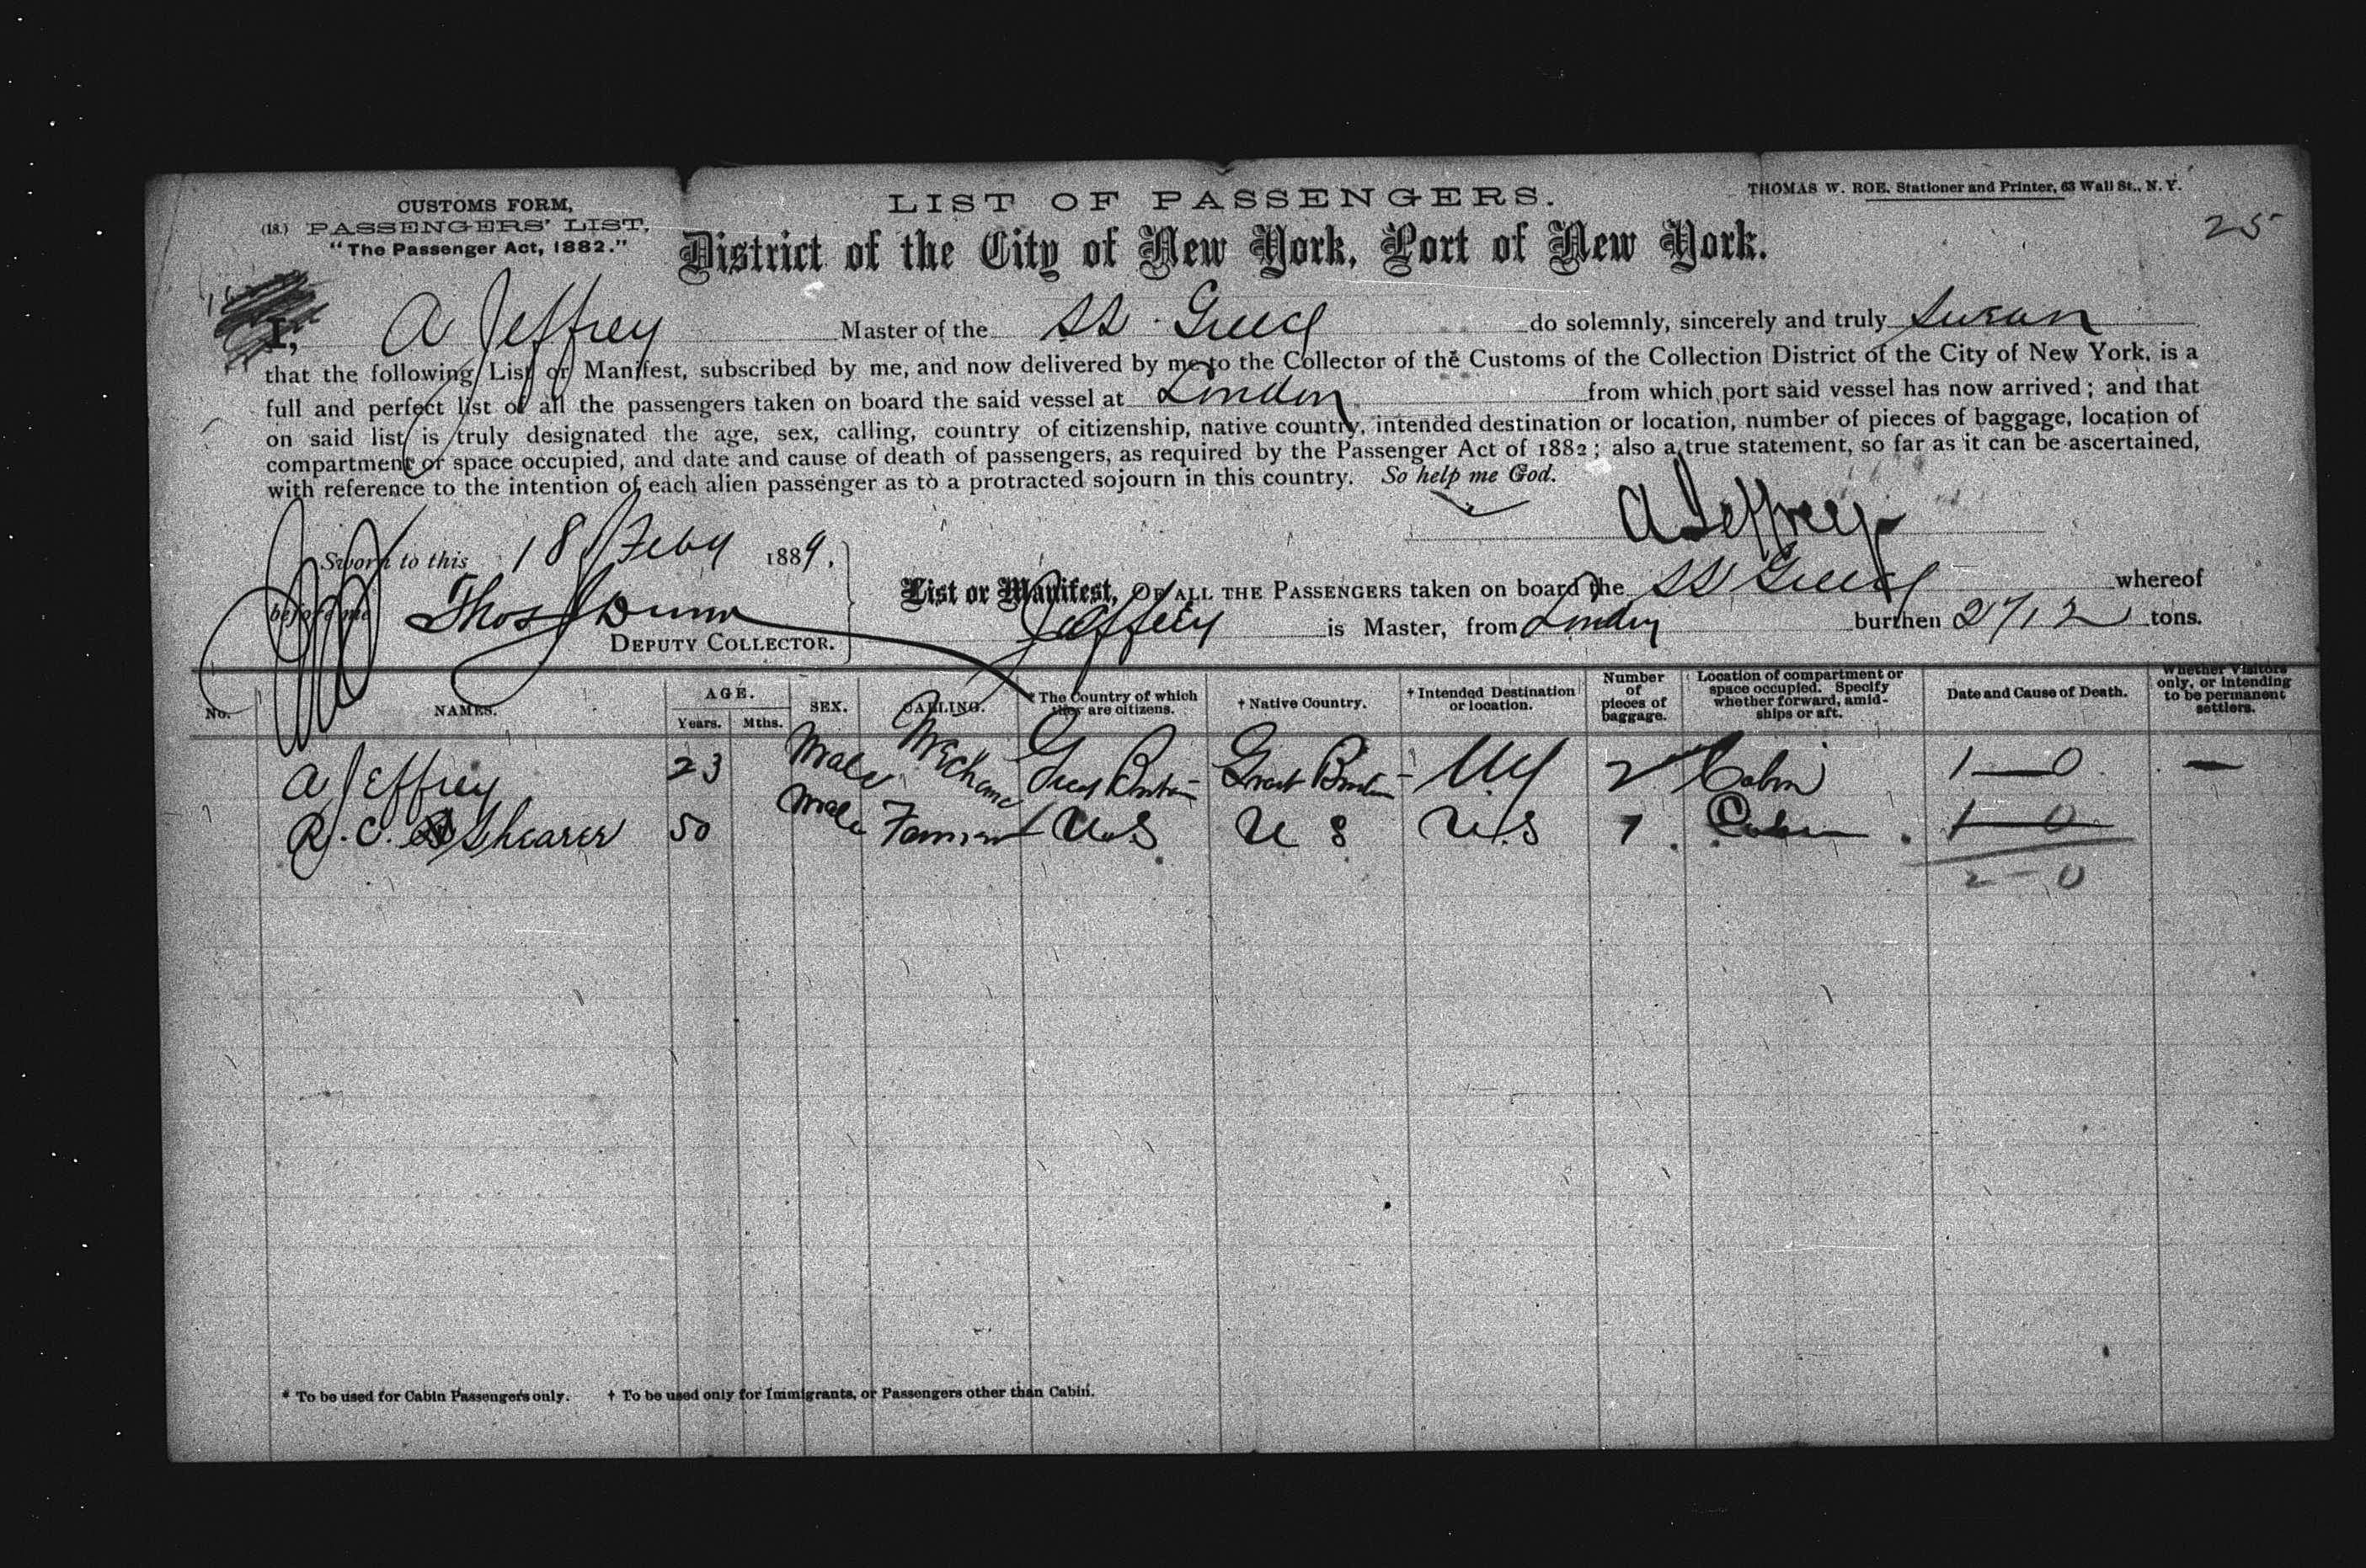 CUSTOMS FORM,
(18.) PASSENGERS' LIST,
"The Passenger Act, 1882."
LIST OF PASSENGERS.
THOMAS W. ROE, Stationer and Printer, 63 Wall St., N. Y.
25
District of the City of New York, Port of New York.
I, A Jeffrey Master of the SS Greece do solemnly, sincerely and truly swear
that the following List or Manifest, subscribed by me, and now delivered by me to the Collector of the Customs of the Collection District of the City of New York, is a
full and perfect list of all the passengers taken on board the said vessel at London from which port said vessel has now arrived; and that
on said list is truly designated the age, sex, calling, country of citizenship, native country, intended destination or location, number of pieces of baggage, location of
compartment or space occupied, and date and cause of death of passengers, as required by the Passenger Act of 1882; also a true statement, so far as it can be ascertained,
with reference to the intention of each alien passenger as to a protracted sojourn in this country. So help me God.
A Jeffrey
Sworn to this 18 Feby 1889.
before me Thos J Dunn
DEPUTY COLLECTOR.
List or Manifest, OF ALL THE PASSENGERS taken on board the SS Greece whereof
Jeffrey is Master, from London burthen 2712 tons.
No. NAMES. AGE. Years. Mths. SEX. CALLING. * The Country of which they are citizens. † Native Country. † Intended Destination or location. Number of pieces of baggage. Location of compartment or space occupied. Specify whether forward, amid-ships or aft. Date and Cause of Death. Whether Visitors only, or intending to be permanent settlers.
A Jeffrey 23 Male Great Britain Great Britain 2 Cabin 1—0 —
R. C. Shearer 50 Male U.S U S U.S 1 Cabin 1—0
2-0
* To be used for Cabin Passengers only. † To be used only for Immigrants, or Passengers other than Cabin.